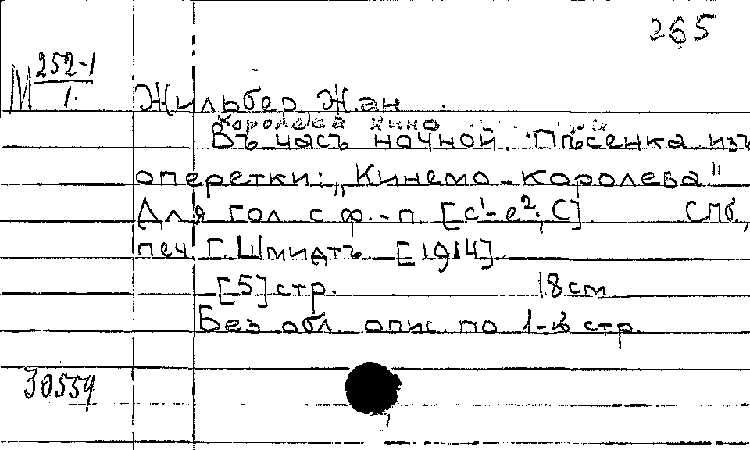 265
М 252-1/1.
Жильбер Жан.
Королева кино
Въ часъ ночной. Пѣсенка изъ
оперетки: „Кинемо-королева"
Для гол. с ф.-п. [c¹-e²; C]. СПб,
печ. Г. Шмидтъ [1914].
[5] стр. 18 см
Без обл. опис. по 1-й стр.
30559